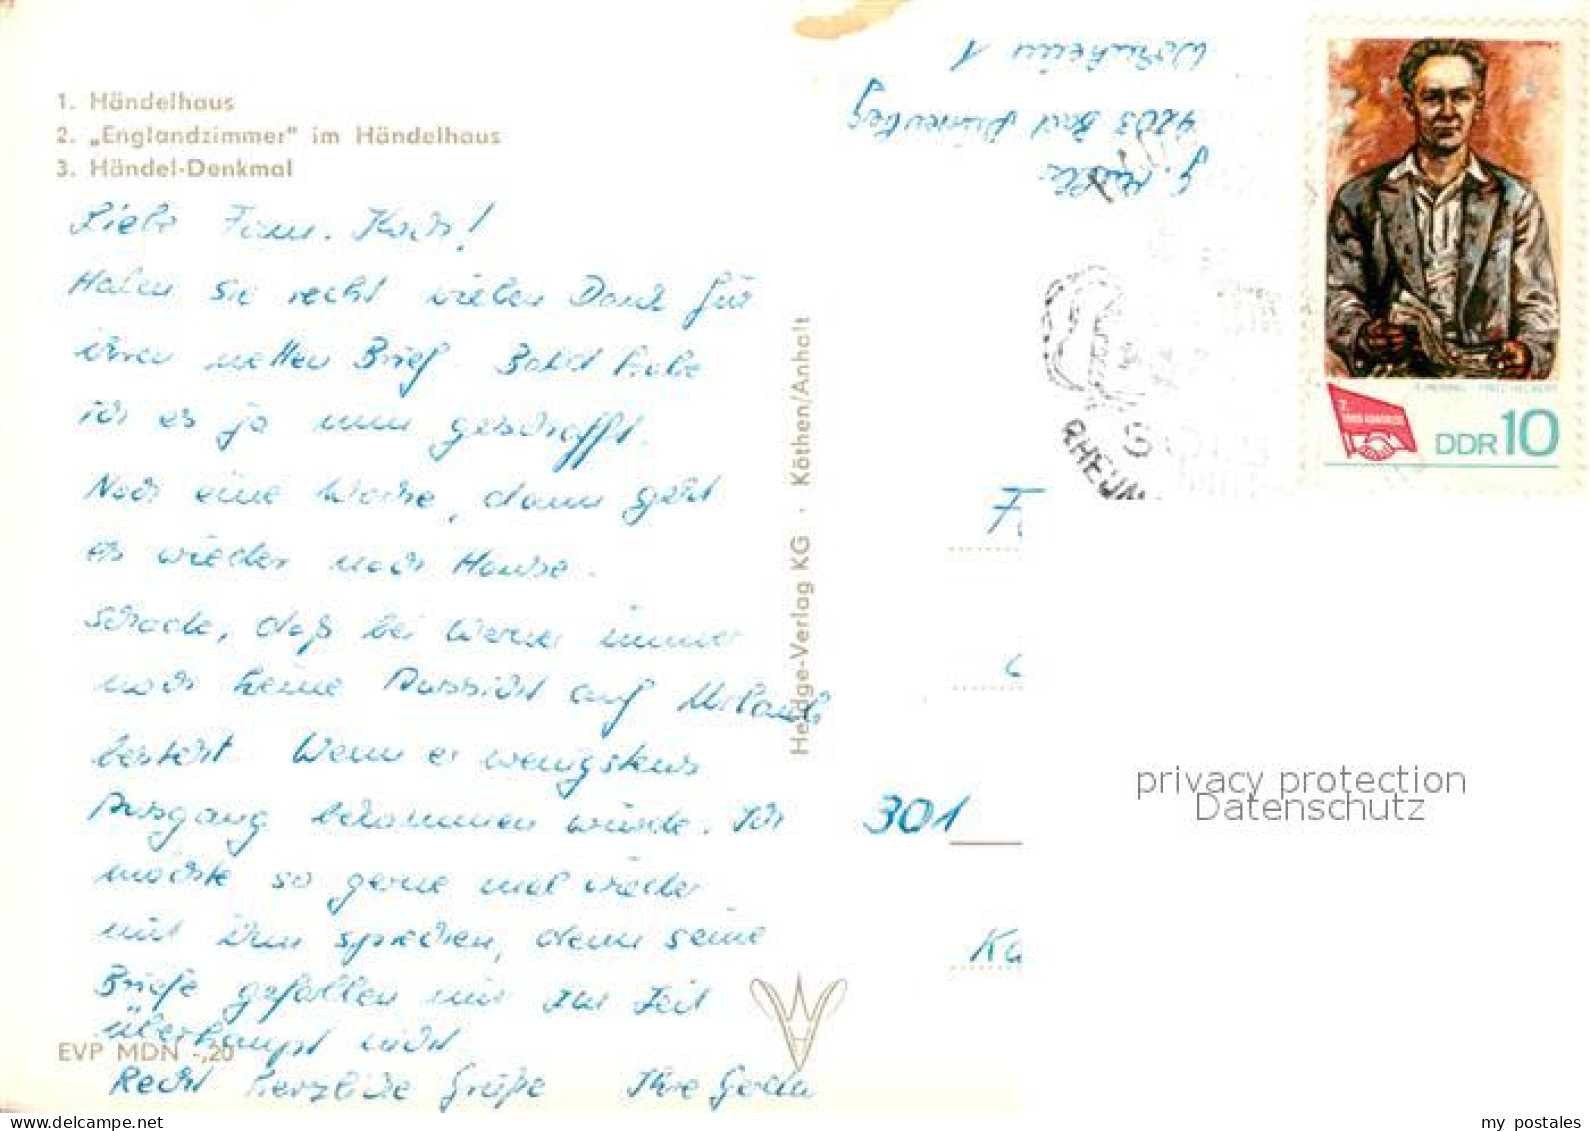 1. Händelhaus
2. „Englandzimmer" im Händelhaus
3. Händel-Denkmal
Liebe Fam. Koch!
Haben Sie recht vielen Dank für
ihren netten Brief. Bald habe
ich es ja nun geschafft.
Noch eine Woche, dann geht
es wieder nach Hause.
Schade, daß bei Werner immer
noch keine Aussicht auf Urlaub
besteht. Wenn er wenigstens
Ausgang bekommen würde. Ich
möchte so gerne mal wieder
mit ihm sprechen, denn seine
Briefe gefallen mir zur Zeit
überhaupt nicht
Recht herzliche Grüße Ihre
EVP MDN -,20
Heldge-Verlag KG · Köthen/Anholt
4203 Bad
1
DDR 10
301
Ka
privacy protection
Datenschutz
hippostcard.com
my postales